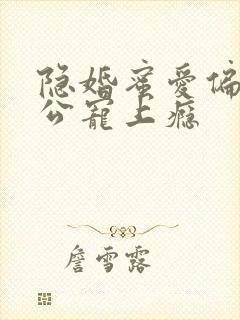 隐婚蜜爱偏
公宠上瘾
詹雪露